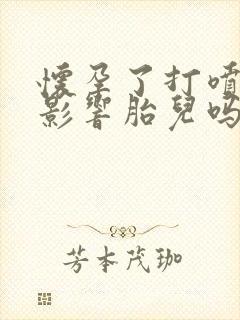 懷孕了打噴
影響胎兒嗎
芳本茂珈